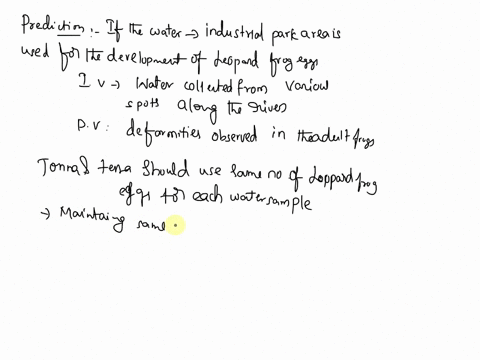 Prediction :- If the water → industrial park area is
used for the development of leopard frog eggs
I v → Water collected from various
spots along the rives
D.v: deformities observed in the adult frogs
Jonna & tessa should use same no of Leppard frog
eggs for each water sample
→ Maintaing same